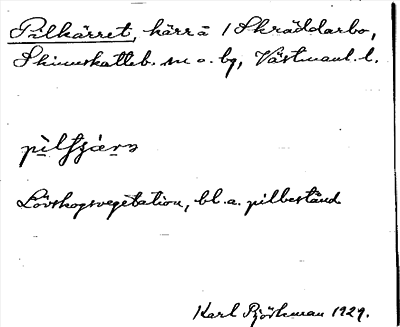 Pilkärret, kärr å 1 Skräddarbo,
Skinnskatteb. sn o. bg, Västmanl. l.
Lövskogsvegetation, bl. a. pilbestånd
Karl Björkman 1929.